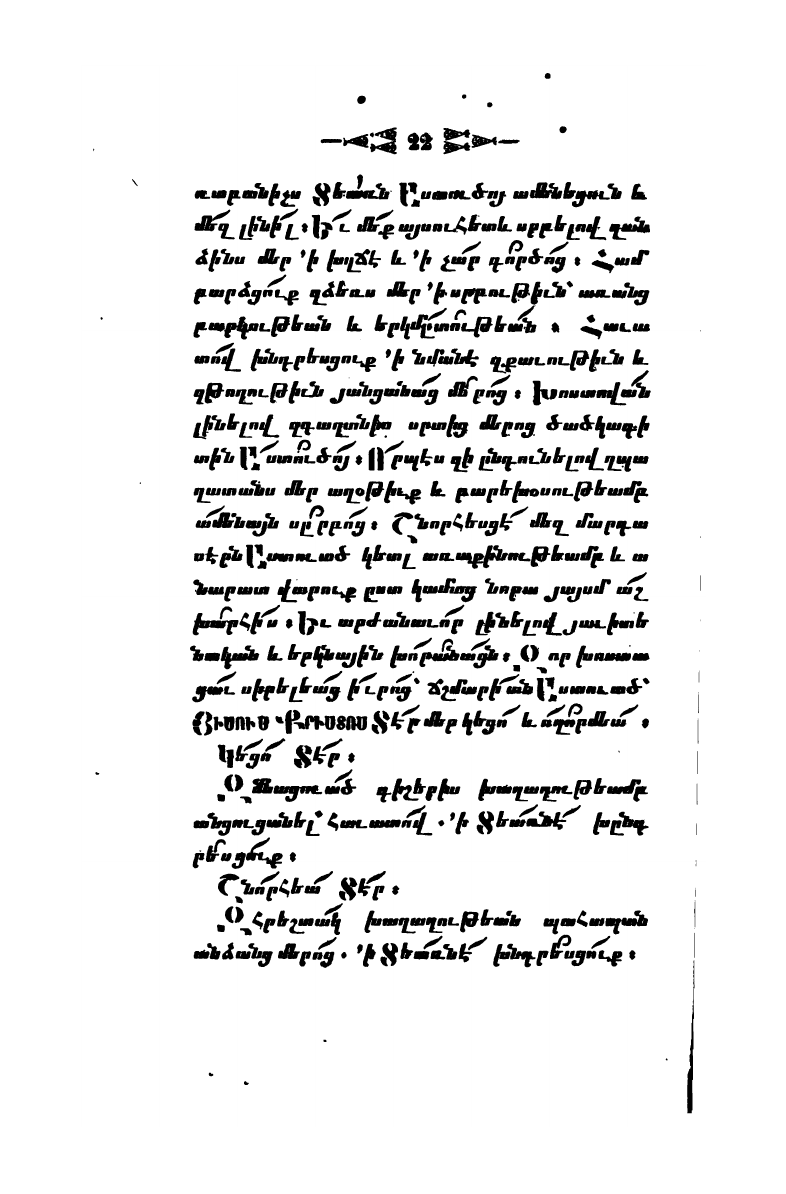 22
ռարանիչս Տեառն Աստուծոյ ամենեցուն և
մեզ լինիլ։ Եւ մեք այսուհետև սրբելով զան
ձինս մեր ՚ի խղճէ և ՚ի չար գործոց։ Համ
բարձցուք զձեռս մեր ՚ի սրբութիւն՝ առանց
բարկութեան և երկմըտութեան։ Հաւա
տով խնդրեսցուք ՚ի նմանէ զքաւութիւն և
զթողութիւն յանցանաց մերոց։ Խոստովան
լինելով զգաղտնիս սրտից մերոց ծածկագի
տին Աստուծոյ։ Որպէս զի ընդունելով զպա
ղատանս մեր աղօթիւք և բարեխօսութեամբ
ամենայն սըրբոց։ Շնորհեսցէ մեզ մարդա
սէրն Աստուած կեալ առաքինութեամբ և ա
նարատ վարուք ըստ կամաց նորա յայսմ աշ
խարհիս։ Եւ արժանաւոր լինելով յաւիտե
նական և երկնային խորանացն։ Զոր խոստա
ցաւ սիրելեաց իւրոց՝ ճշմարիտն Աստուած՝
ՅԻՍՈՒՍ ՔՐԻՍՏՈՍ Տէր մեր կեցո և ողորմեա։
Կեցո Տէր։
Զժամ գիշերիս խաղաղութեամբ
անցուցանել՝ հաւատով. ՚ի Տեառնէ խընդ
րեսցուք։
Շնորհեա Տէր։
Զհրեշտակ խաղաղութեան պահապան
անձանց մերոց. ՚ի Տեառնէ խնդրեսցուք։